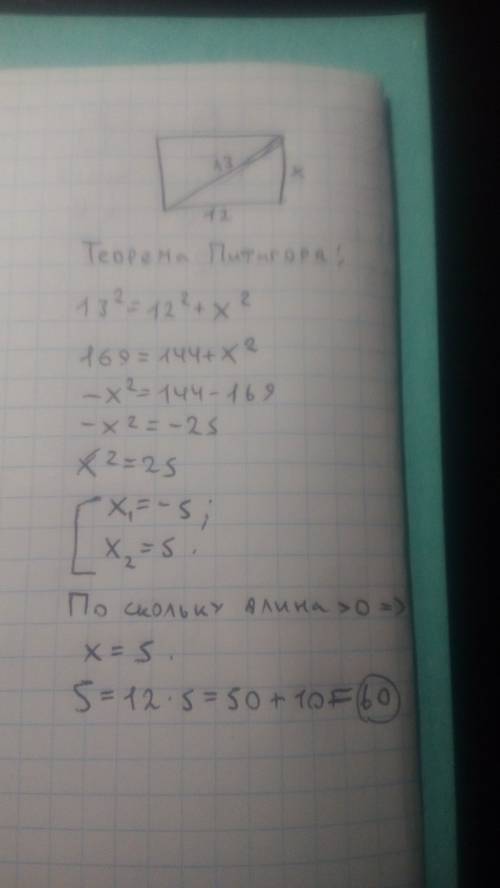 13
x
12
Теорема Питагора:
13² = 12² + x²
169 = 144 + x²
-x² = 144 - 169
-x² = -25
x² = 25
[ x₁ = -5;
x₂ = 5.
По скольку длина > 0 =>
x = 5.
S = 12 · 5 = 50 + 10 = 60